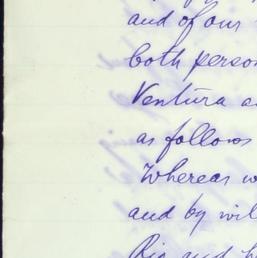 and of our
both person
Ventura a
as follows
Whereas w
and by wil
Rio and h